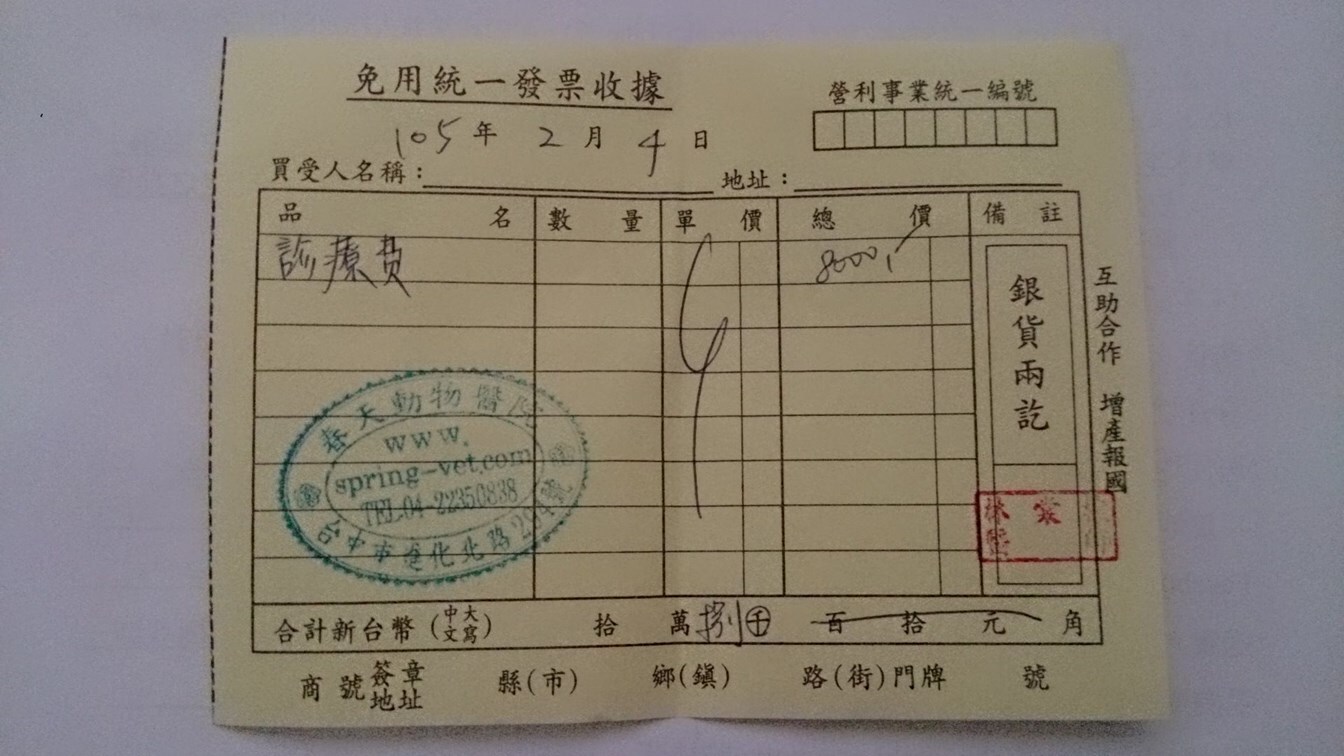 免用統一發票收據
營利事業統一編號
105年 2月 4日
買受人名稱： 地址：
品名 數量 單價 總價 備註
診療費 8000,
銀貨兩訖
互助合作 增產報國
春天動物醫院
www.
spring-vet.com
TEL:04-22350838
台中市進化北路294號
合計新台幣(中文大寫) 拾 萬 捌 千 百 拾 元 角
商號簽章地址 縣(市) 鄉(鎮) 路(街)門牌 號